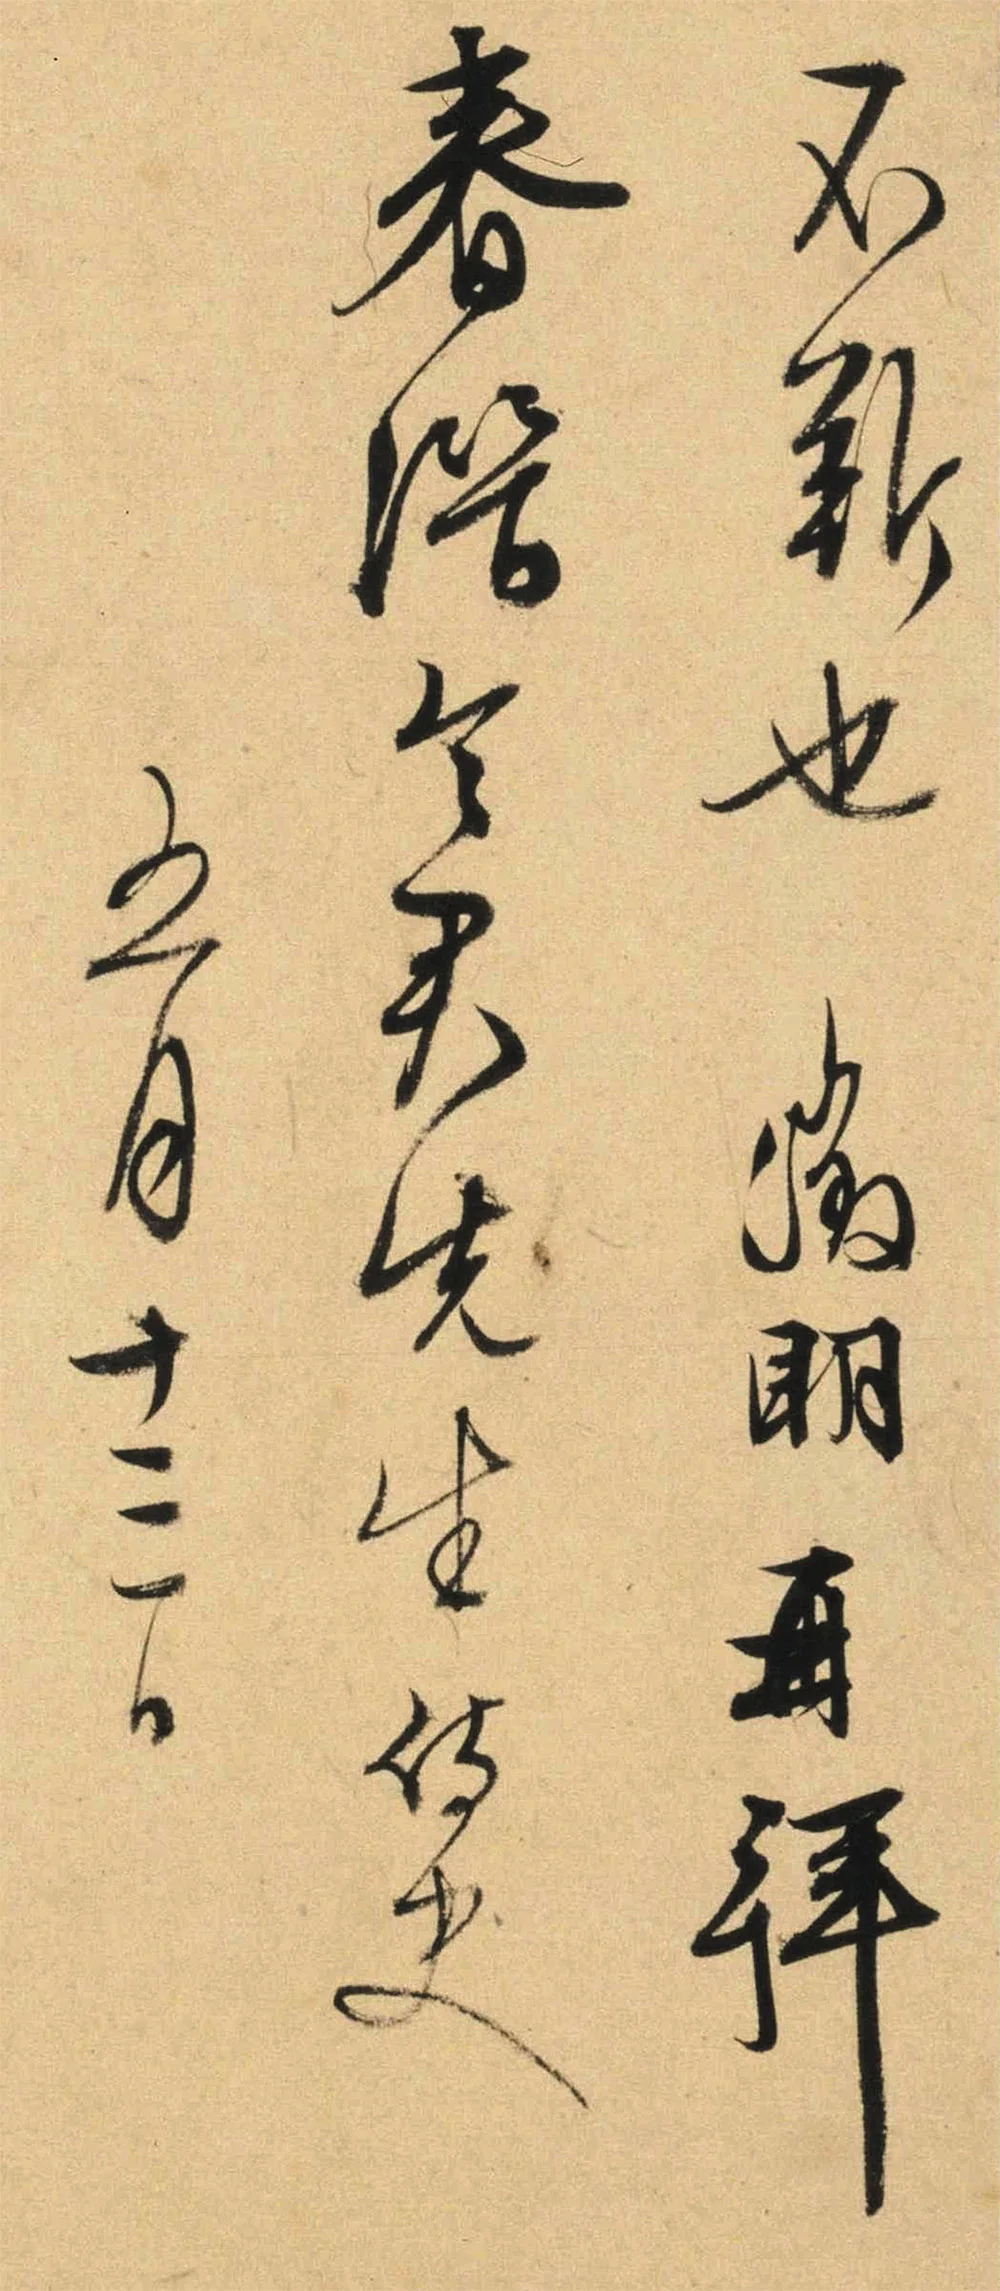 不靳也 徵明再拜
春潛令君先生侍史
五月十三日